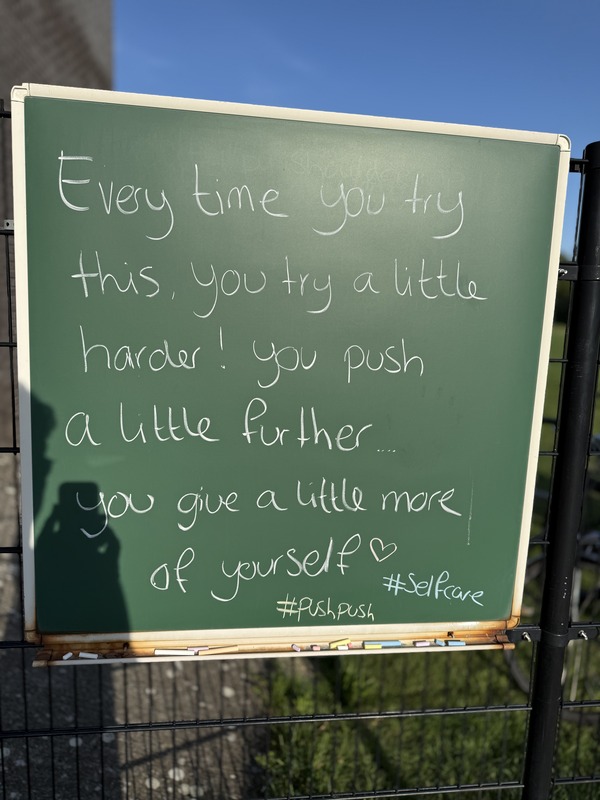 Every time you try
this, you try a little
harder! you push
a little further...
you give a little more
of yourself♡
#Selfcare
#pushpush